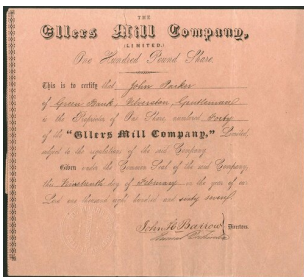 THE
Ellers Mill Company,
(LIMITED.)
One Hundred Pound Share.
This is to certify that John Parker
of Green Bank, Ulverston, Gentleman
is the Proprietor of One Share numbered Forty
of the "Ellers Mill Company," Limited
subject to the regulations of the said Company
Given under the Common Seal of the said Company
the Nineteenth day of February in the year of our
Lord one thousand eight hundred and sixty seven
John H Barrow
Directors.